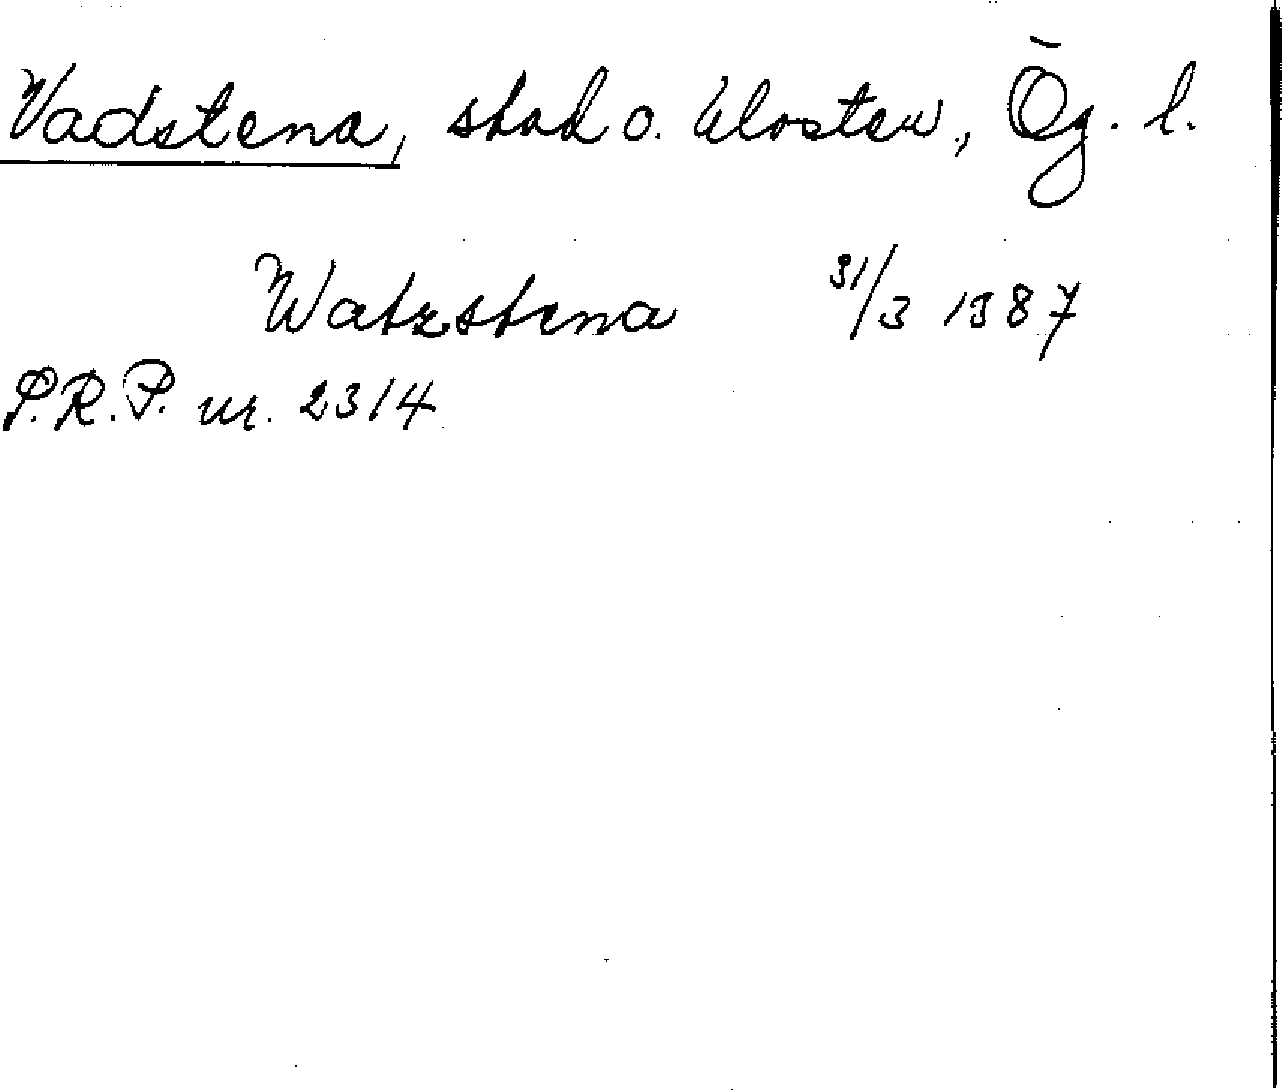 Vadstena, stad o. kloster, Ög. l.
Watzstena 31/3 1387
P.R.P. nr. 2314